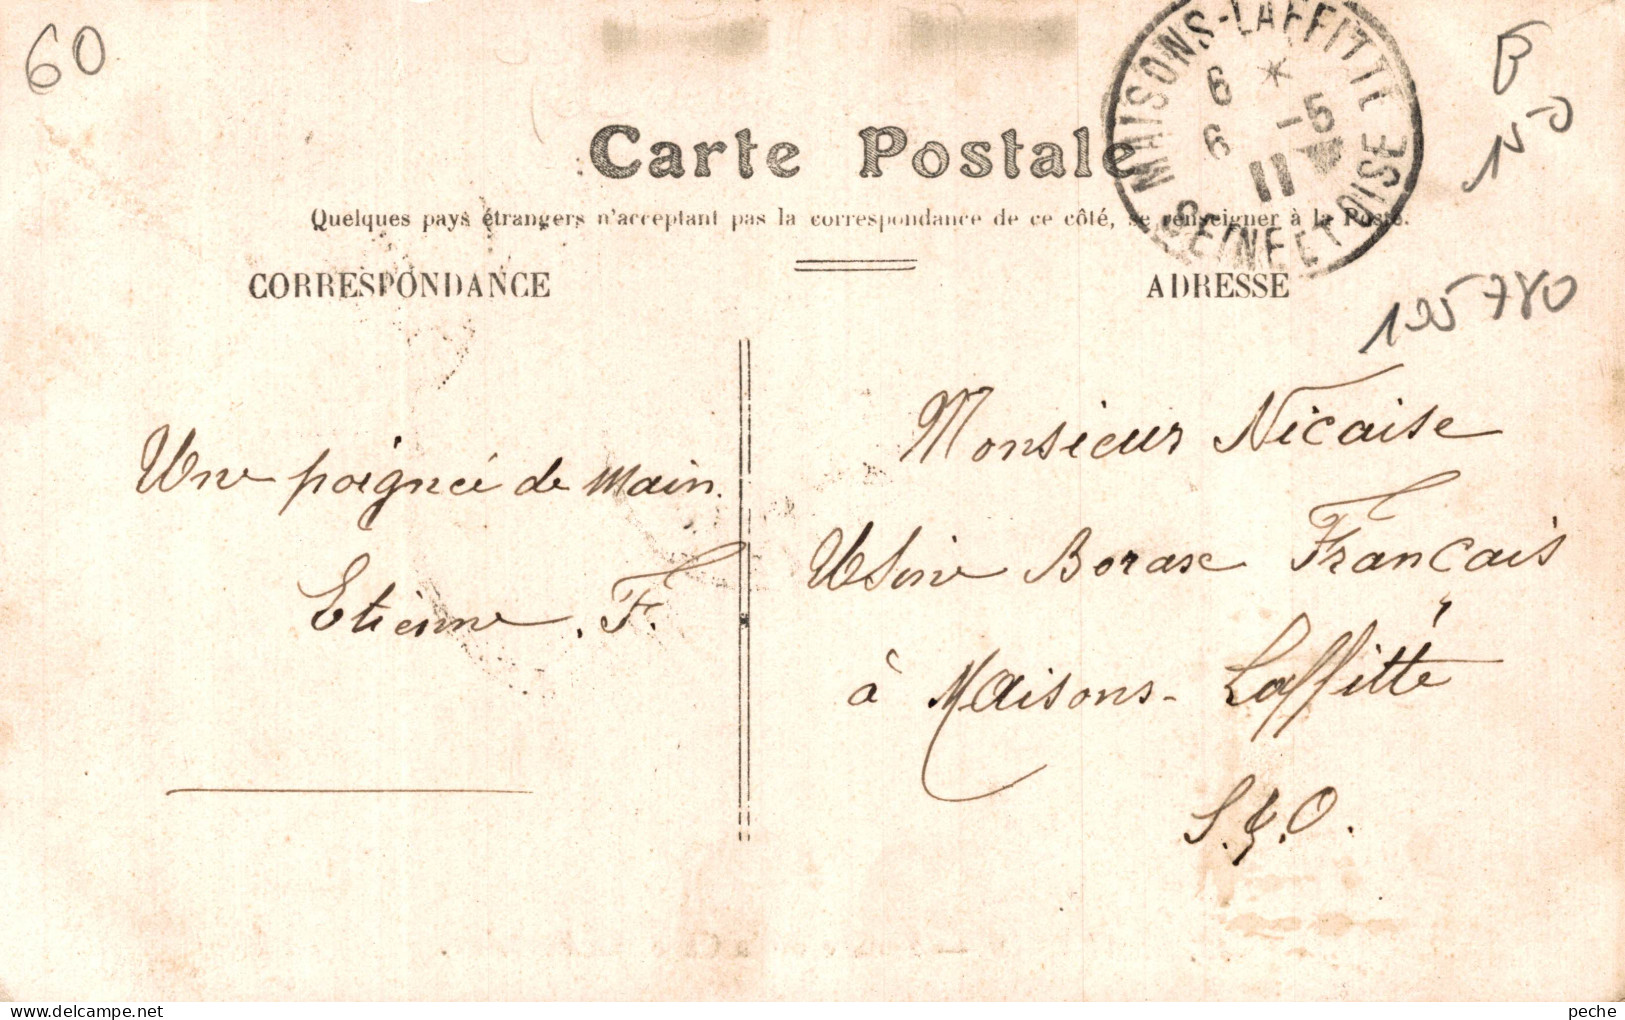 60
MAISONS-LAFFITTE
6 * -5
6 11
SEINE ET OISE
B
150
Carte Postale
Quelques pays étrangers n'acceptent pas la correspondance de ce côté, se renseigner à la Poste.
CORRESPONDANCE
ADRESSE
195780
Une poignée de main.
Etienne. F.
Monsieur Nicaise
Usine Borax Français
à Maisons-Laffitte
S. & O.
peche